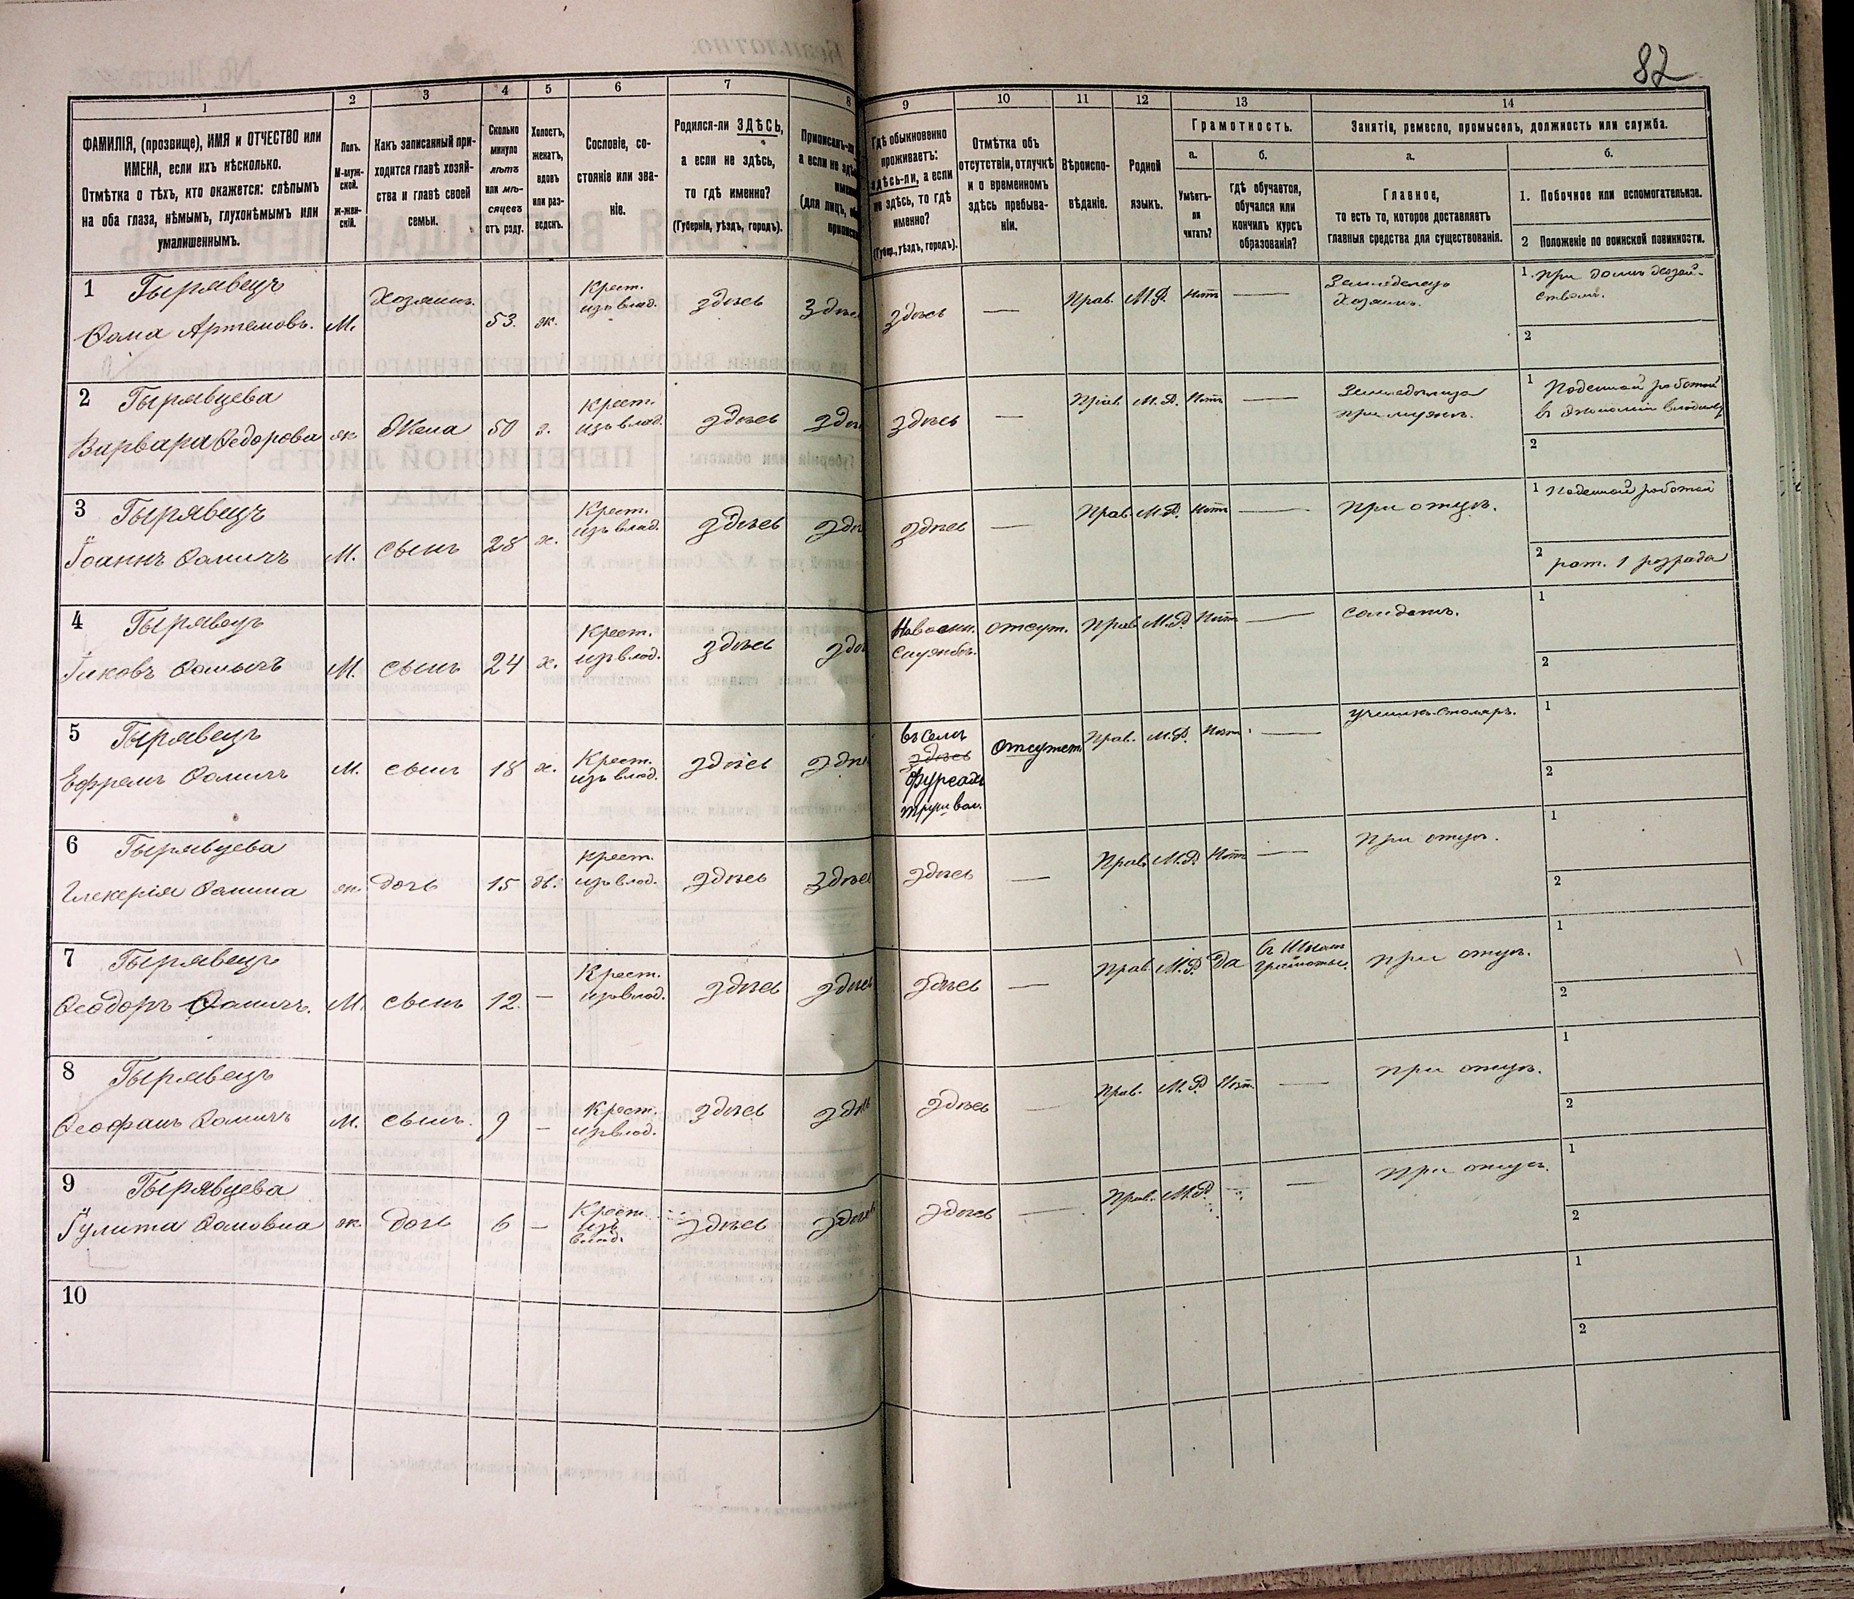 82
1 2 3 4 5 6 7 8 9 10 11 12 13 14
ФАМИЛІЯ, (прозвище), ИМЯ и ОТЧЕСТВО или
ИМЕНА, если ихъ нѣсколько.
Отмѣтка о тѣхъ, кто окажется: слѣпымъ
на оба глаза, нѣмымъ, глухонѣмымъ или
умалишеннымъ.
Полъ.
М-муж-
ской.
Ж-жен-
скій.
Какъ записанный при-
ходится главѣ хозяй-
ства и главѣ своей
семьи.
Сколько
минуло
лѣтъ
или мѣ-
сяцевъ
отъ роду.
Холостъ,
женатъ,
вдовъ
или раз-
веденъ.
Сословіе, со-
стояніе или зва-
ніе.
Родился-ли ЗДѢСЬ,
а если не здѣсь,
то гдѣ именно?
(Губернія, уѣздъ, городъ).
Гдѣ обыкновенно
проживаетъ:
здѣсь-ли, а если
не здѣсь, то гдѣ
именно?
(Губер., уѣздъ, городъ).
Отмѣтка объ
отсутствіи, отлучкѣ
и о временномъ
здѣсь пребыва-
ніи.
Вѣроиспо-
вѣданіе.
Родной
языкъ.
Грамотность.
а. б.
Умѣетъ-
ли
читать?
гдѣ обучается,
обучался или
кончилъ курсъ
образованія?
Занятіе, ремесло, промыселъ, должность или служба.
а. б.
Главное,
то есть то, которое доставляетъ
главныя средства для существованія.
1. Побочное или вспомогательное.
2 Положеніе по воинской повинности.
1 Гырявецъ Хозяинъ Крест. Прав. М.Р. нѣтъ — Земледѣлецъ 1. При домѣ хозяй-
Ѳома Артемовъ. М. 53. ж. изъ влад. здѣсь здѣсь здѣсь — хозяинъ. ствомъ.
2
2 Гырявцева Крест. Прав. М.Р. Нѣтъ — 1 Поденной работой
Варвара Ѳедорова ж Жена 50 з. изъ влад. здѣсь здѣсь здѣсь — при мужѣ.
2
3 Гырявецъ Крест. Прав. М.Р. Нѣтъ — при отцѣ. 1 Поденной работой
Іоаннъ Ѳомичъ М. сынъ 28 х. изъ влад. здѣсь здѣсь здѣсь — 2 рат. 1 розряда
4 Гырявецъ Крест. На воен. отсут. Прав. М.Р. Нѣтъ — солдатъ. 1
Іаковъ Ѳомичъ М. сынъ 24 х. изъ влад. здѣсь здѣсь службѣ. 2
5 Гырявецъ Крест. въ селѣ отсутст. Прав. М.Р. Нѣтъ — ученикъ столяръ. 1
Ефремъ Ѳомичъ М. сынъ 18 х. изъ влад. здѣсь здѣсь здѣсь 2
6 Гырявцева Крест. Прав. М.Р. Нѣтъ — при отцѣ. 1
Гликерія Ѳомина ж. дочь 15 дв. изъ влад. здѣсь здѣсь здѣсь — 2
7 Гырявецъ Крест. Прав. М.Р. Да въ Школѣ при отцѣ. 1
Ѳеодоръ Ѳомичъ. М. сынъ 12. — изъ влад. здѣсь здѣсь здѣсь — грамоты. 2
8 Гырявецъ Крест. Прав. М.Р. Нѣт. — при отцѣ. 1
Ѳеофанъ Ѳомичъ М. сынъ. 9 — изъ влад. здѣсь здѣсь здѣсь — 2
9 Гырявцева Крест. Прав. М.Р. — — при отцѣ. 1
Іулита Ѳомовна ж. дочь 6 — изъ влад. здѣсь здѣсь здѣсь — 2
10 1
2